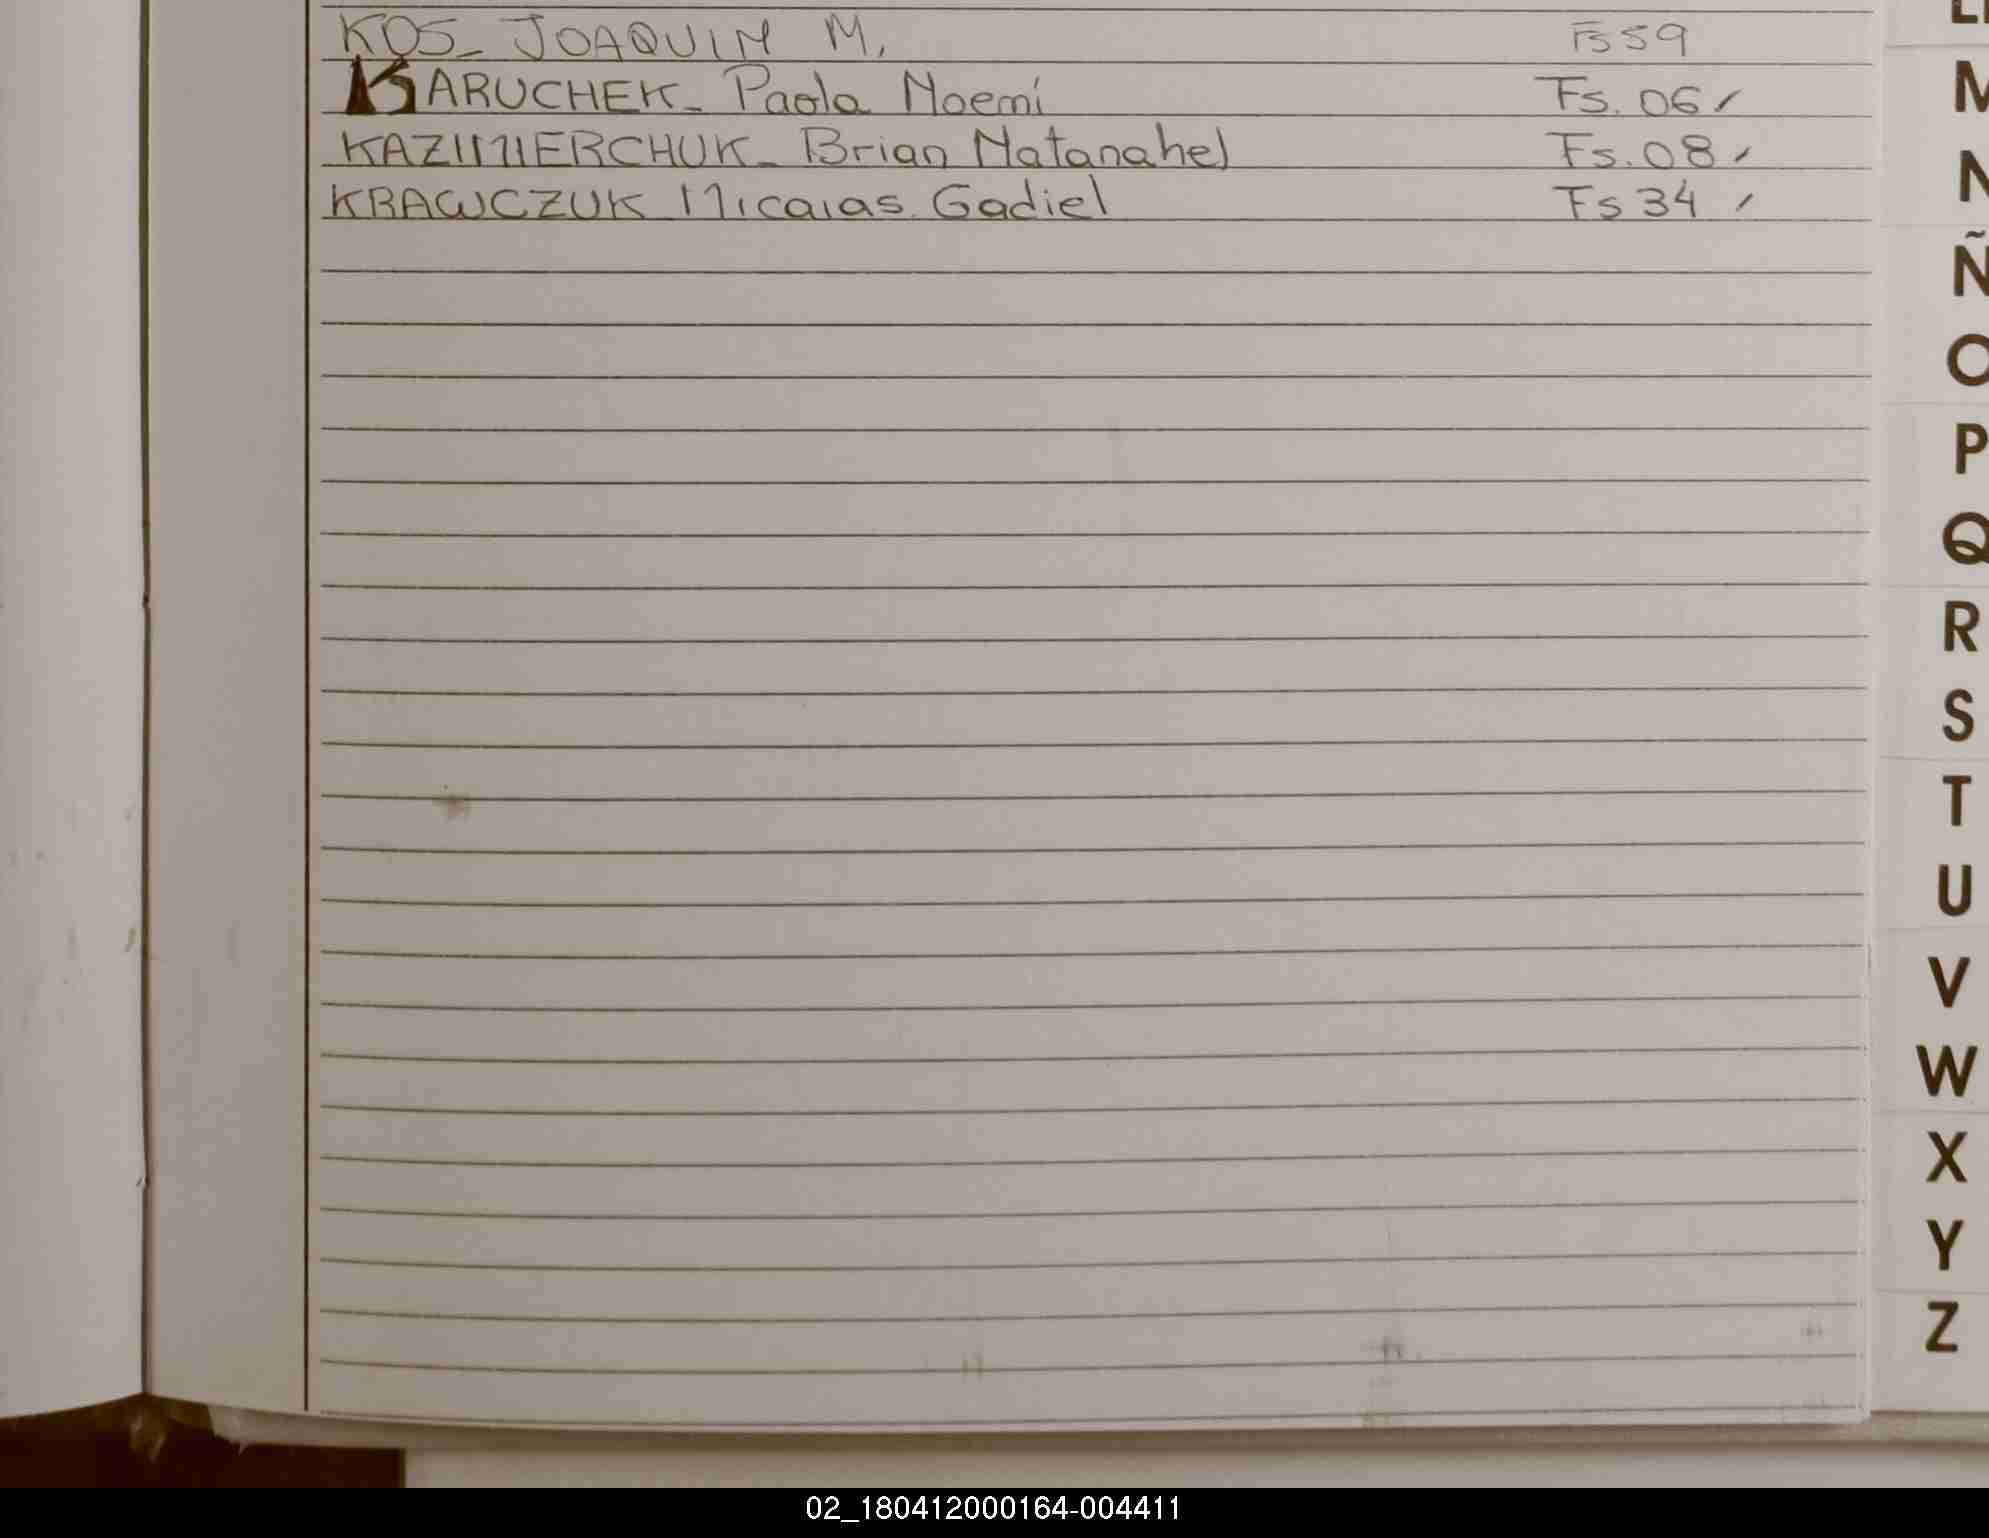 KOS_ JOAQUIN M. Fs 59
KARUCHEK_ Paola Noemí Fs. 06 /
KAZIMIERCHUK_ Brian Natanahel Fs. 08 /
KRAWCZUK Micaias Gadiel Fs 34 /
M
N
Ñ
O
P
Q
R
S
T
U
V
W
X
Y
Z
02_180412000164-004411